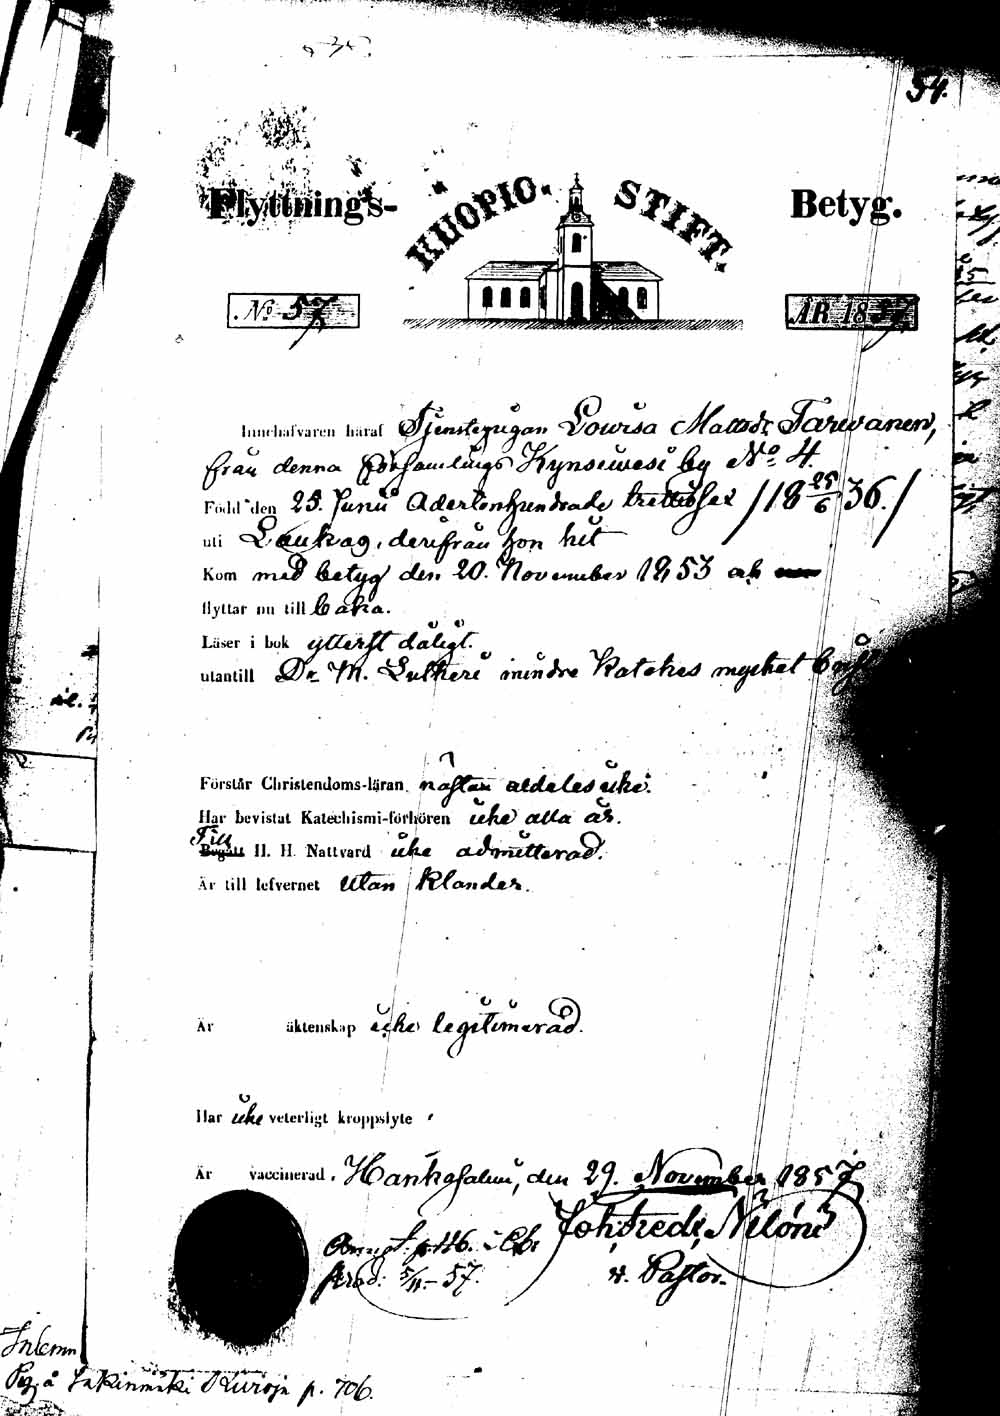 54.
Flyttnings- KUOPIO STIFT. Betyg.
No 57, ÅR 1857
Innehafvaren häraf Tjenstepigan Lowisa Mattsdr Tarwanen,
från denna församlings Kynsiwesi by No 4.
Född den 25. Junii Adertonhundrade trettiosex /18 25/6 36./
uti Laukas, derifrån hon hit
Kom med betyg den 20. November 1853 och
flyttar nu till baka.
Läser i bok ytterst dåligt.
utantill Dr. M. Lutheri mindre Katekes mycket
Förstår Christendoms-läran nästan aldeles icke.
Har bevistat Katechismi-förhören icke alla år.
Till
Begått H. H. Nattvard icke admitterad.
Är till lefvernet utan klander.
Är äktenskap icke legitimerad.
Har icke veterligt kroppslyte
Är vaccinerad. Hankasalmi, den 29. November 1857,
p. 116. Joh: Fredr. Nilonii
57. v. Pastor.
Inlemn
Pig. å p. 706.